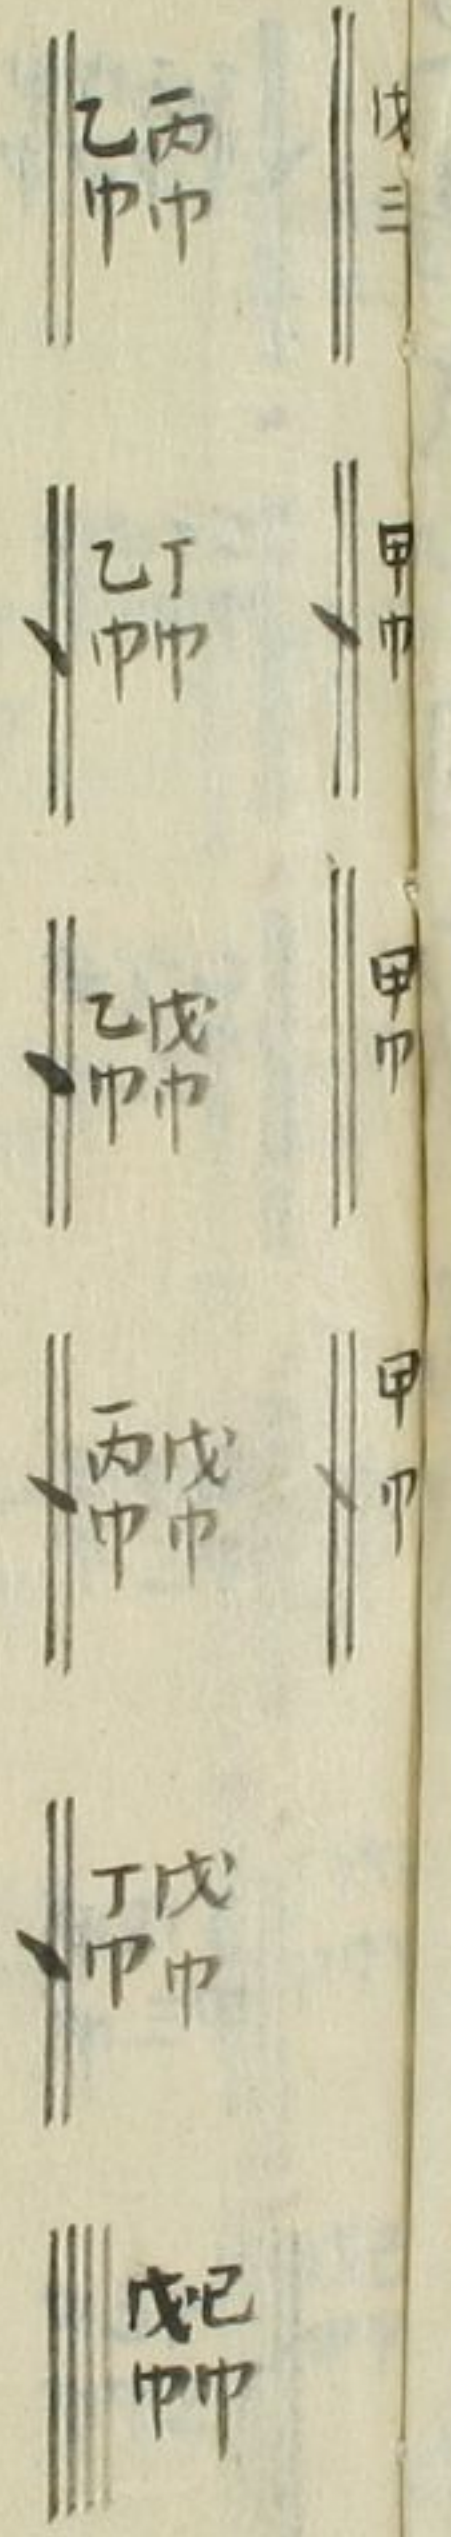 戊三
甲巾
甲巾
甲巾
乙巾 丙巾
乙巾 丁巾
乙巾 戊巾
丙巾 戊巾
丁巾 戊巾
戊巾 巳巾